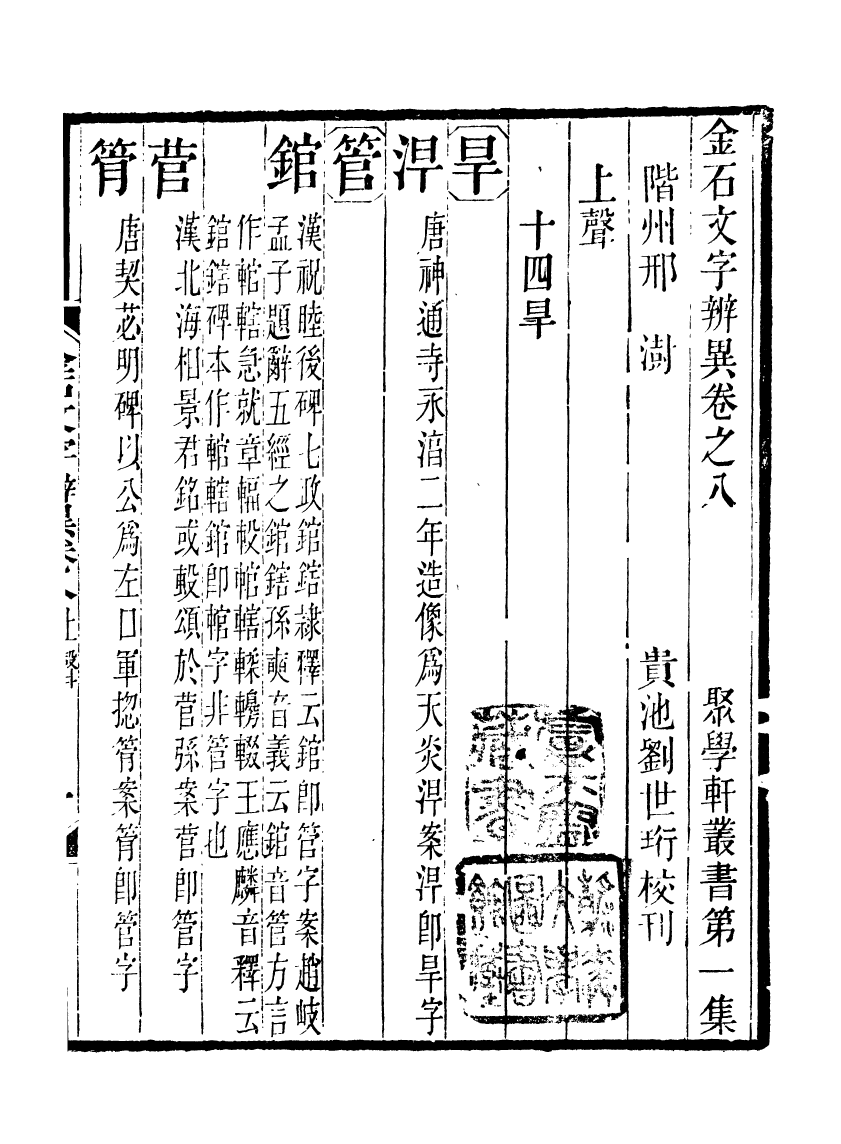 金石文字辨異卷之八 聚學軒叢書第一集
階州邢 澍 貴池劉世珩校刊
上聲
十四旱
旱
涆 唐神通寺永淳二年造像爲天炎涆案涆卽旱字
管
錧 漢祝睦後碑七政錧鎋隸釋云錧卽管字案趙岐
孟子題辭五經之錧鎋孫奭音義云錧音管方言
作輨轄急就章輻轂輨轄輮轑輟王應麟音釋云
錧鎋碑本作輨轄錧卽輨字非管字也
菅 漢北海相景君銘或轂頌於菅孫案菅卽管字
筲 唐契苾明碑以公爲左口軍揔筲案筲卽管字